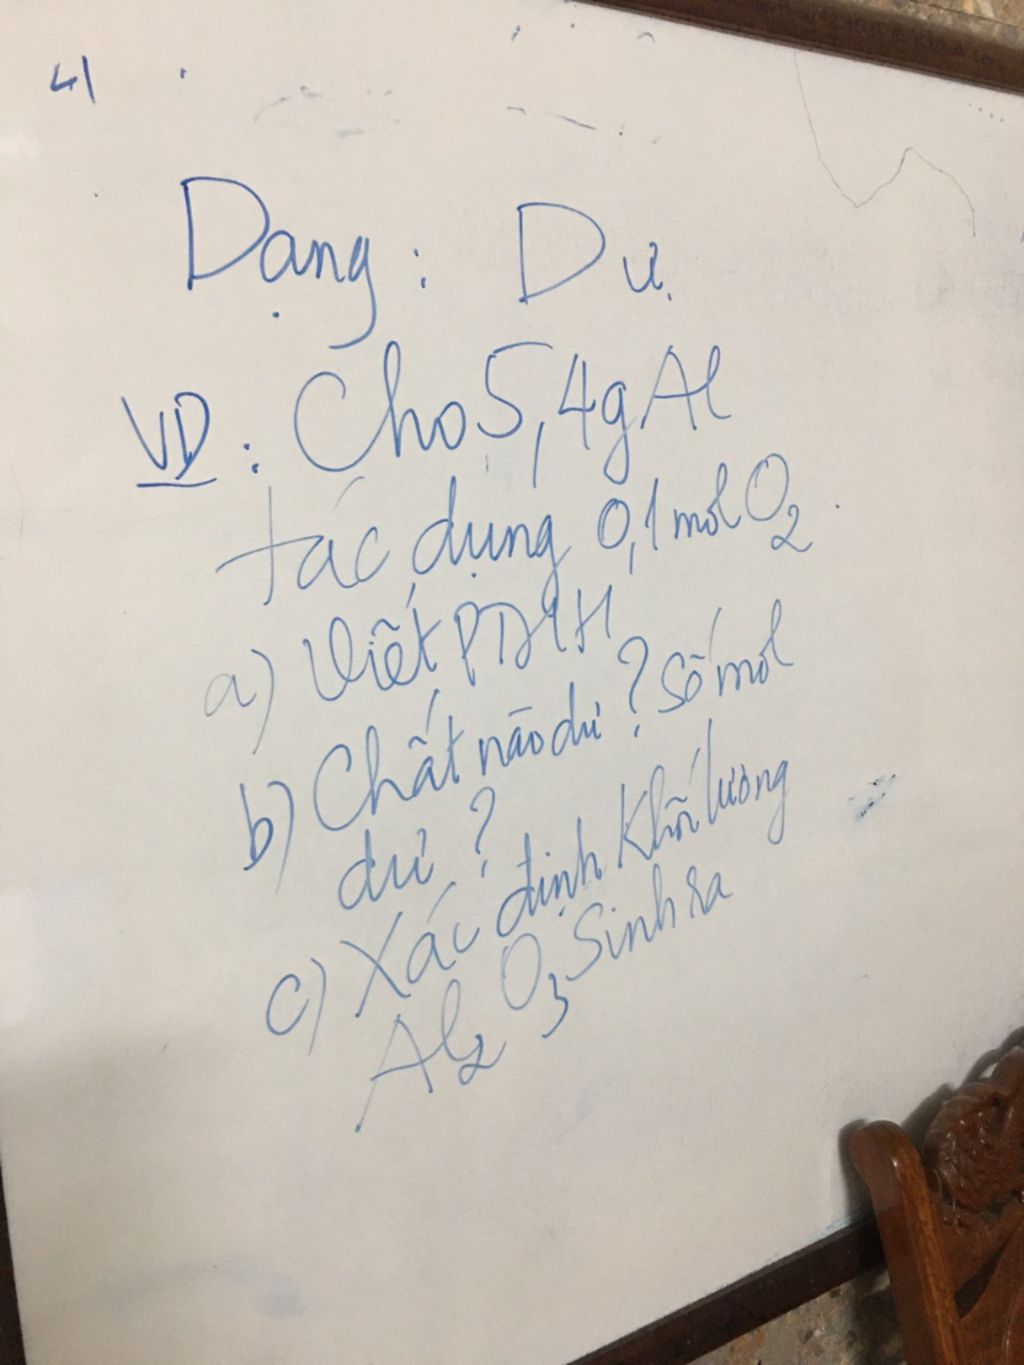 4
Dạng: Dư
VD: Cho 5,4g Al
tác dụng 0,1 mol O₂
a) Viết PTHH
b) Chất nào dư? Số mol
dư?
c) Xác định Khối lượng
Al₂O₃ Sinh ra